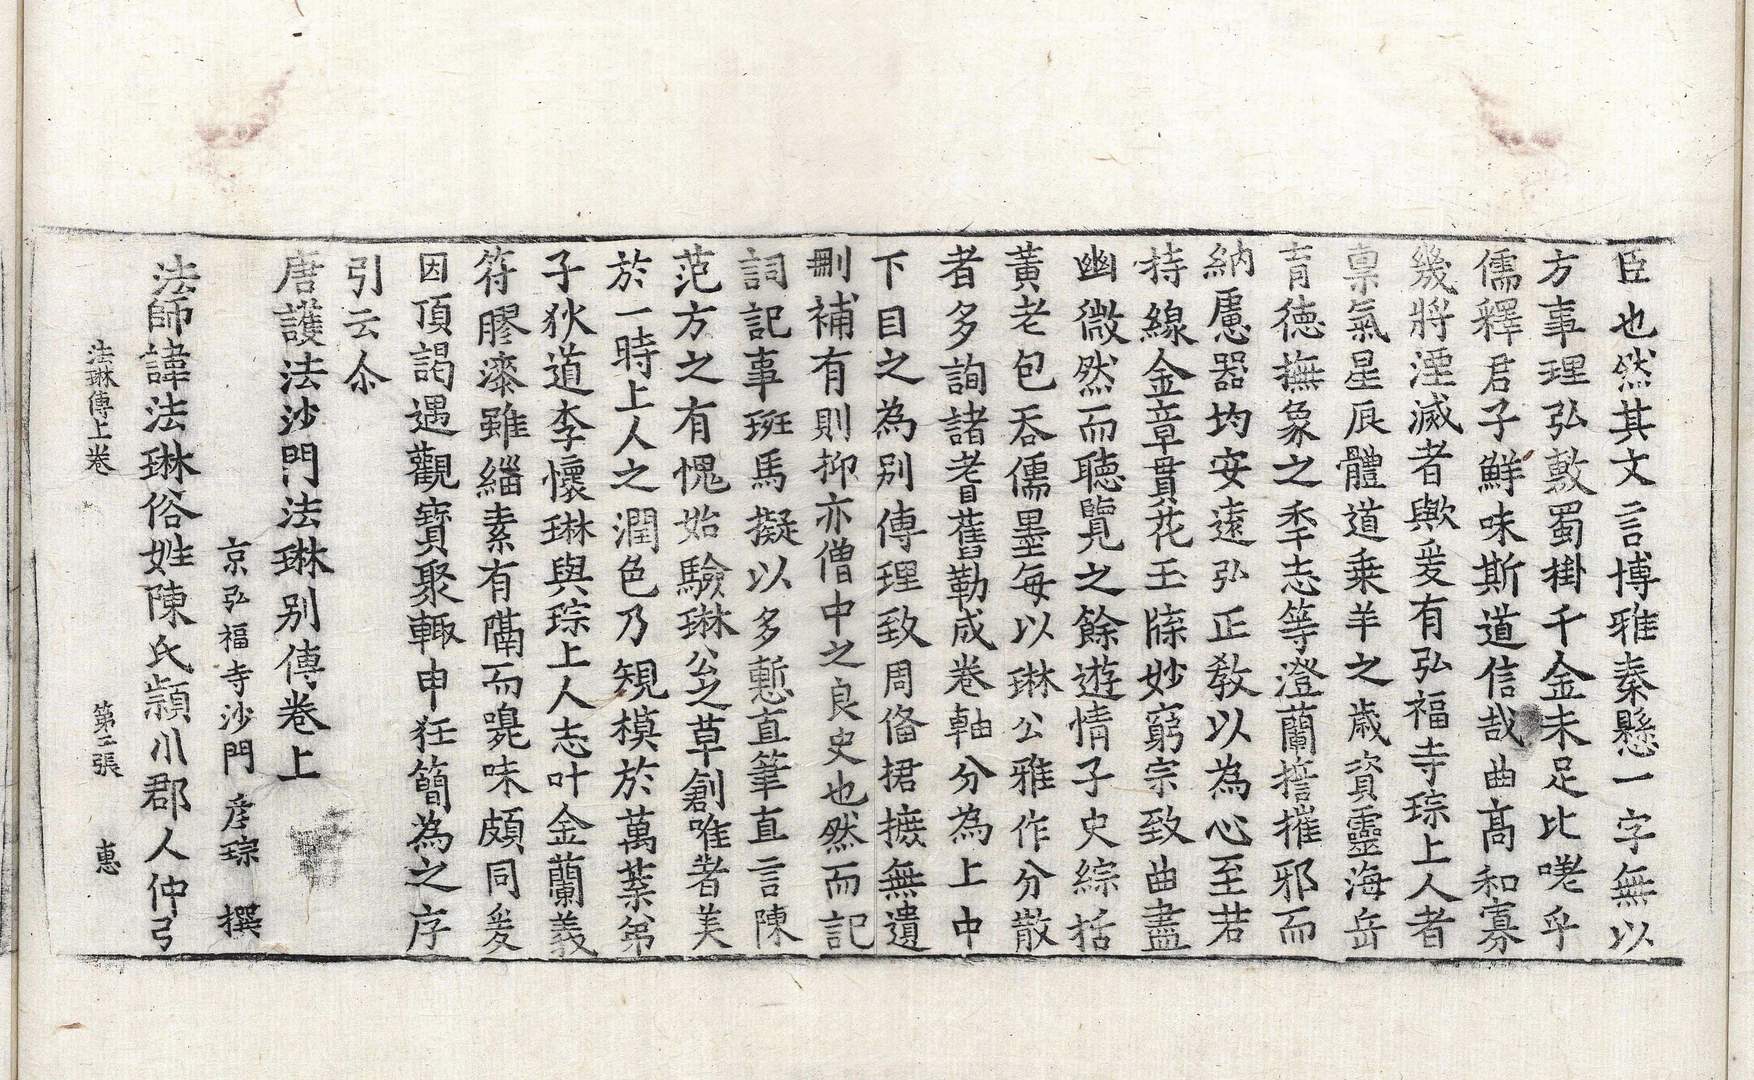 臣也然其文言博雅秦懸一字無以
方事理弘敷蜀掛千金未足比嘥乎
儒釋君子鮮味斯道信哉曲高和寡
幾將湮滅者歟爰有弘福寺琮上人者
稟氣星辰體道乗羊之歲資靈海岳
育徳撫象之季志等澄蘭誓摧邪而
納慮器均安遠弘正敎以為心至若
持線金章貫花玉牒妙窮宗致曲盡
幽微然而聴覽之餘遊情子史綜括
黄老包吞儒墨每以琳公雅作分散
者多詢諸耆舊勒成卷軸分為上中
下目之為别傳理致周俻捃摭無遺
刪補有則抑亦僧中之良史也然而記
詞記事班馬擬以多慙直筆直言陳
范方之有愧始驗琳公之草創唯者美
於一時上人之潤色乃規模於萬葉弟
子狄道李懷琳與琮上人志叶金蘭義
符膠漆雖緇素有隔而㗖味頗同爰
因頂謁遇觀寶聚輙申狂簡為之序
引云尒
唐護法沙門法琳别傳卷上
京弘福寺沙門 彦琮 撰
法師諱法琳俗姓陳氏潁川郡人仲弓
法琳傳上卷 第二張 惠